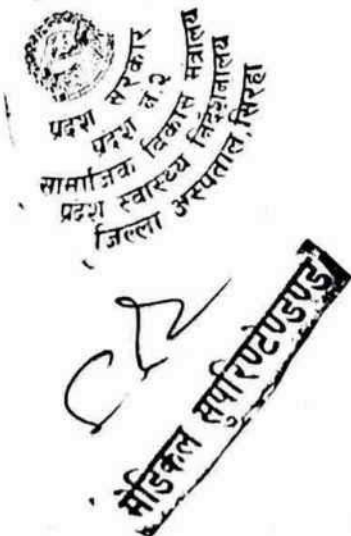 प्रदेश सरकार
प्रदेश नं.२
सामाजिक विकास मंत्रालय
प्रदेश स्वास्थ्य निर्देशनालय
जिल्ला अस्पताल, सिरहा
मेडिकल सुपरिण्टेण्डेण्ड